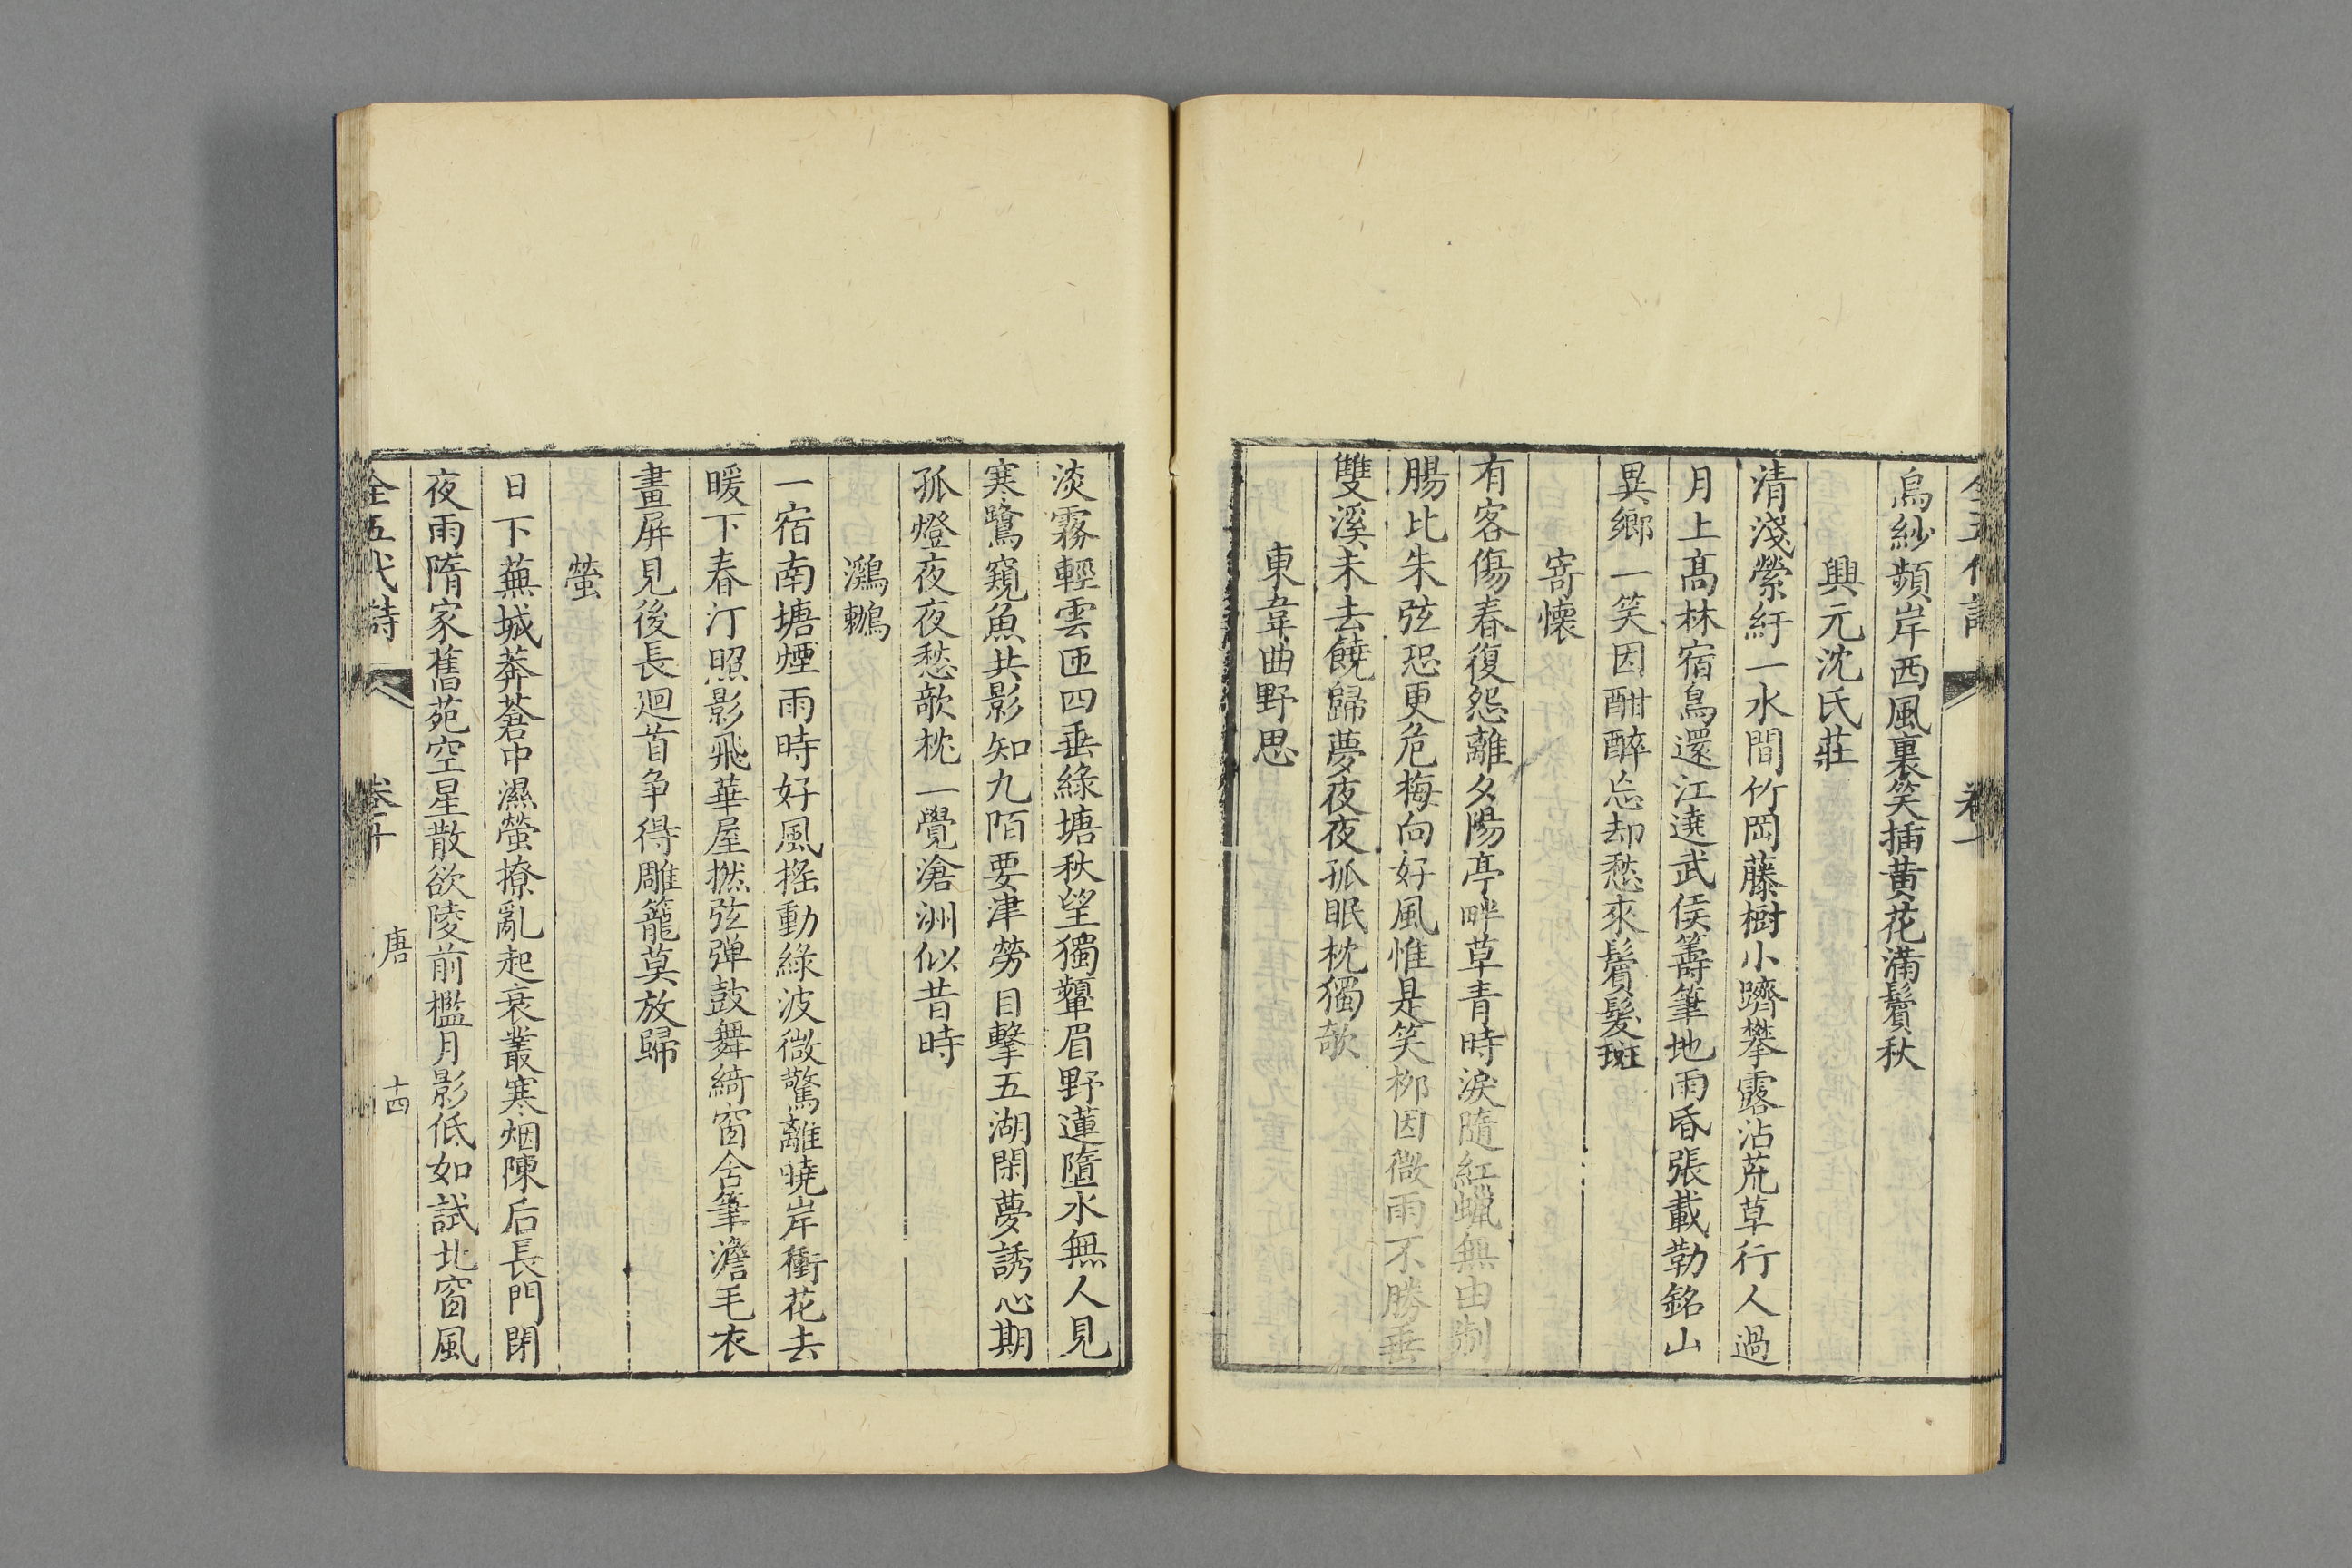 烏紗頻岸西風裏笑插黃花滿鬢秋
興元沈氏莊
清淺縈紆一水間竹岡藤樹小躋攀露沾荒草行人過
月上高林宿鳥還江遶武侯籌筆地雨昏張載勒銘山
異鄉一笑因酣醉忘却愁來鬢髮斑
寄懷
有客傷春復怨離夕陽亭畔草青時淚隨紅蠟無由制
腸比朱弦恐更危梅向好風惟是笑柳因微雨不勝垂
雙溪未去饒歸夢夜夜孤眠枕獨欹
東韋曲野思
淡霧輕雲匝四垂綠塘秋望獨顰眉野蓮墮水無人見
寒鷺窺魚共影知九陌要津勞目擊五湖閑夢誘心期
孤燈夜夜愁欹枕一覺滄洲似昔時
鸂鶒
一宿南塘煙雨時好風搖動綠波微驚離曉岸衝花去
暖下春汀照影飛華屋撚弦彈鼓舞綺窗含筆澹毛衣
畫屏見後長迴首爭得雕籠莫放歸
螢
日下蕪城莽蒼中濕螢撩亂起衰叢寒烟陳后長門閉
夜雨隋家舊苑空星散欲陵前檻月影低如試北窗風
全五代詩 唐 十四